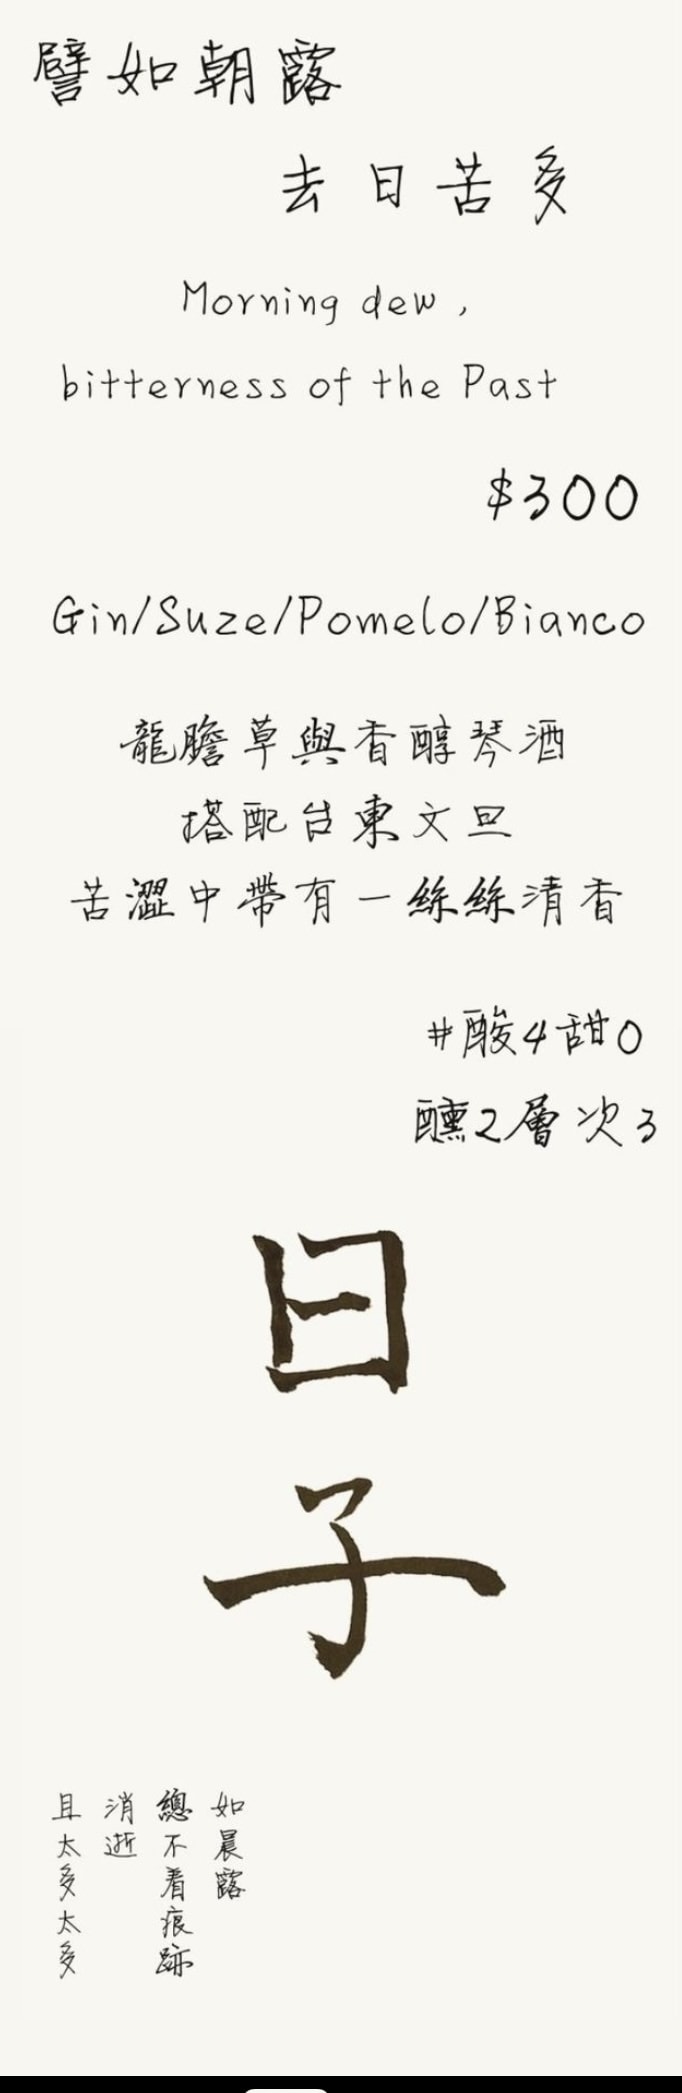 譬如朝露
去日苦多
Morning dew,
bitterness of the Past
$300
Gin/Suze/Pomelo/Bianco
龍膽草與香醇琴酒
搭配台東文旦
苦澀中帶有一絲絲清香
#酸4甜0
醺2層次3
日
子
如晨露
總不着痕跡
消逝
且太多太多